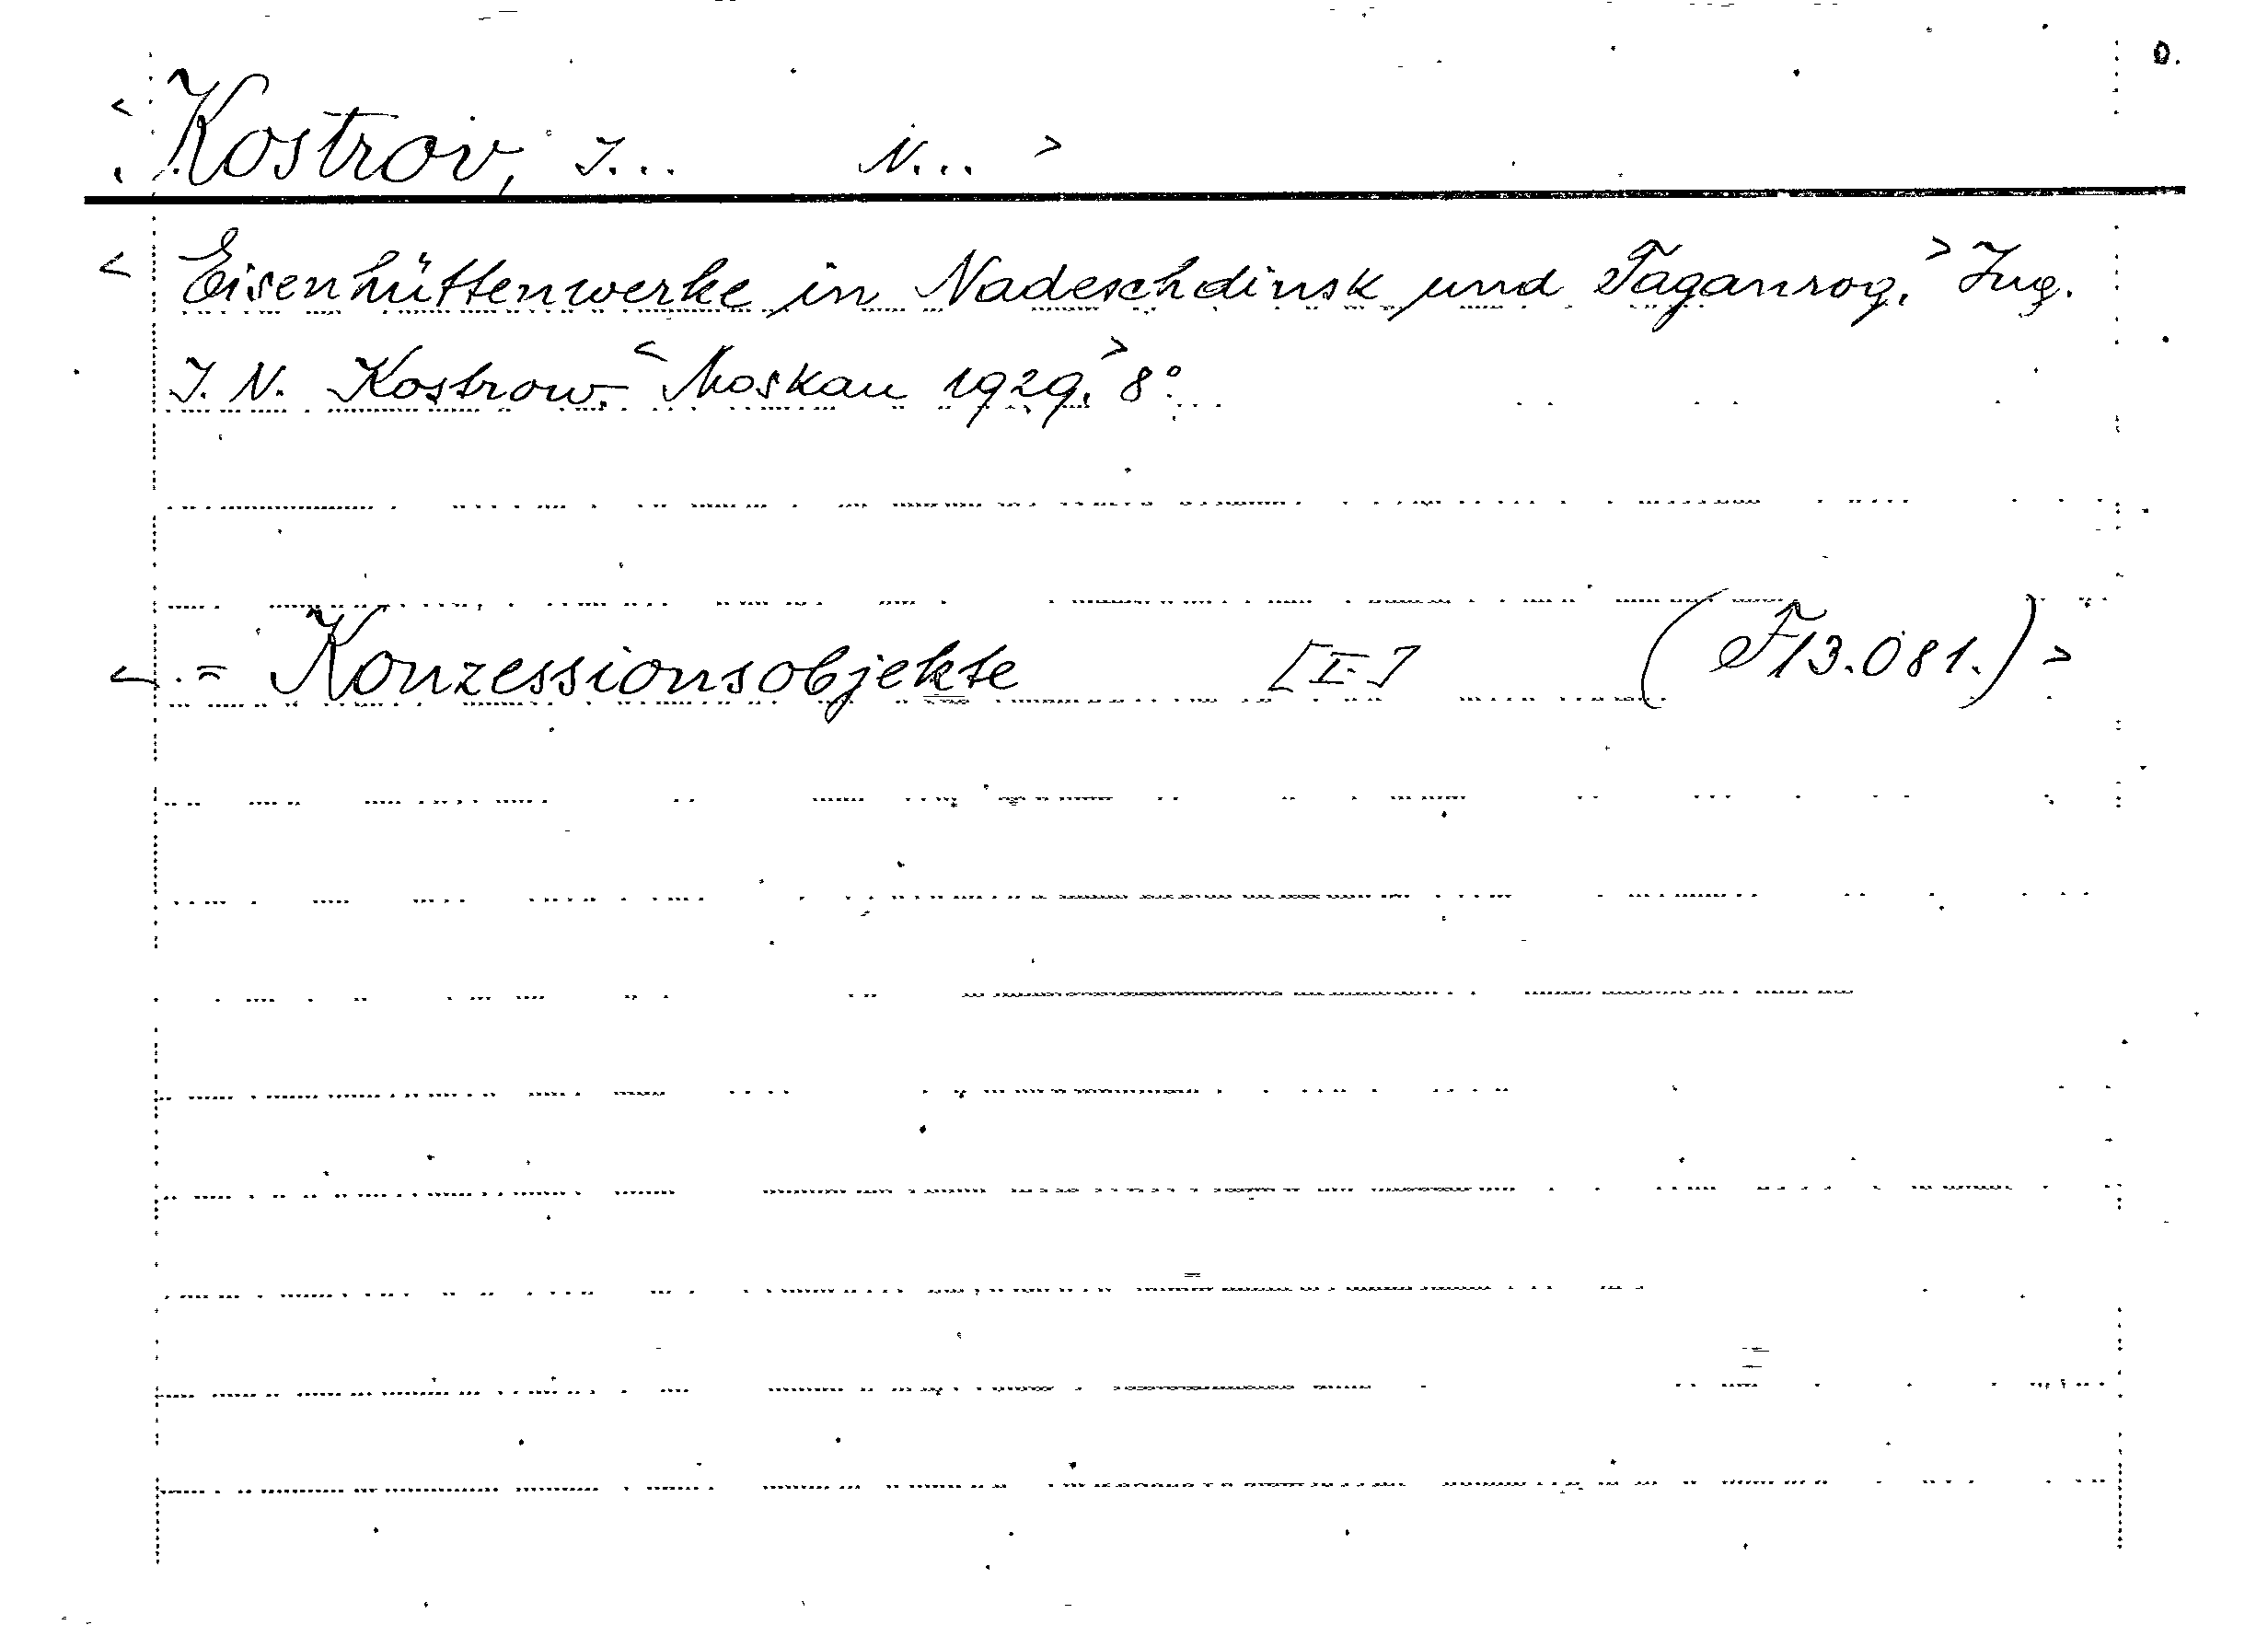 0.
< Kostrov, I... N... >
< Eisenhüttenwerke in Nadeschdinsk und Taganrog. > Ing.
I. N. Kostrow. < Moskau 1929. > 8°.
< = Konzessionsobjekte [I.] (F 13.081.) >